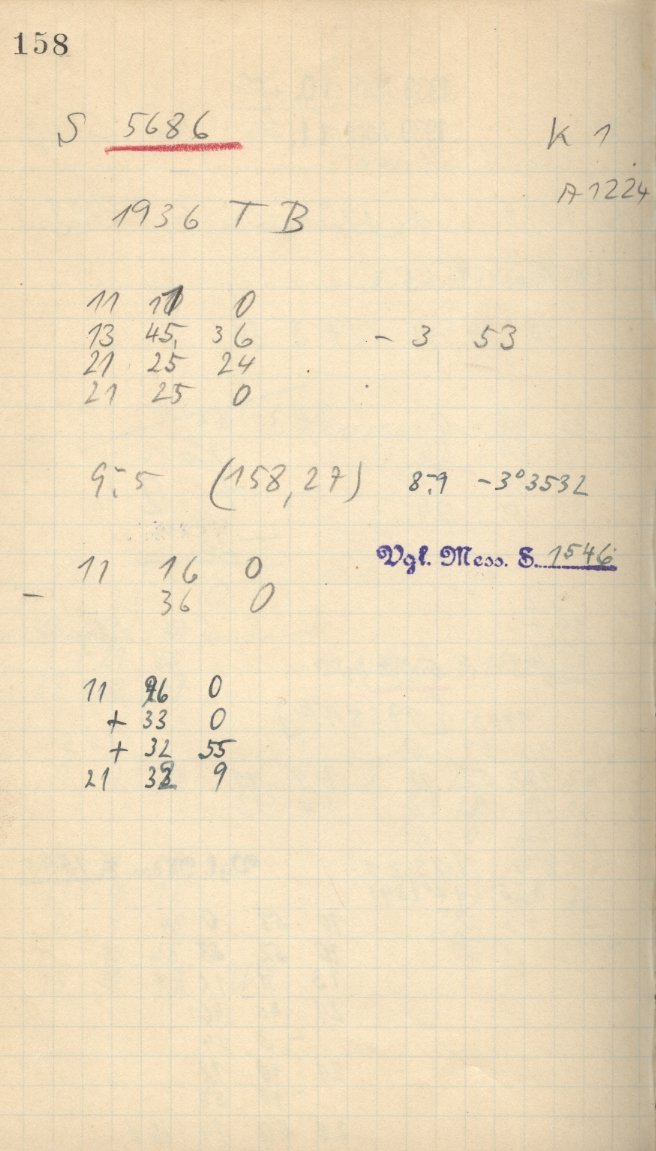 158
S 5686 K 1
A 1224
1936 T B
11 11 0
13 45, 36 - 3 53
21 25 24
21 25 0
9:5 (158,27) 8:9 -3°3532
11 16 0
- 36 0
Vgl. Mess. S. 1546
11 26 0
+ 33 0
+ 32 55
21 32 9